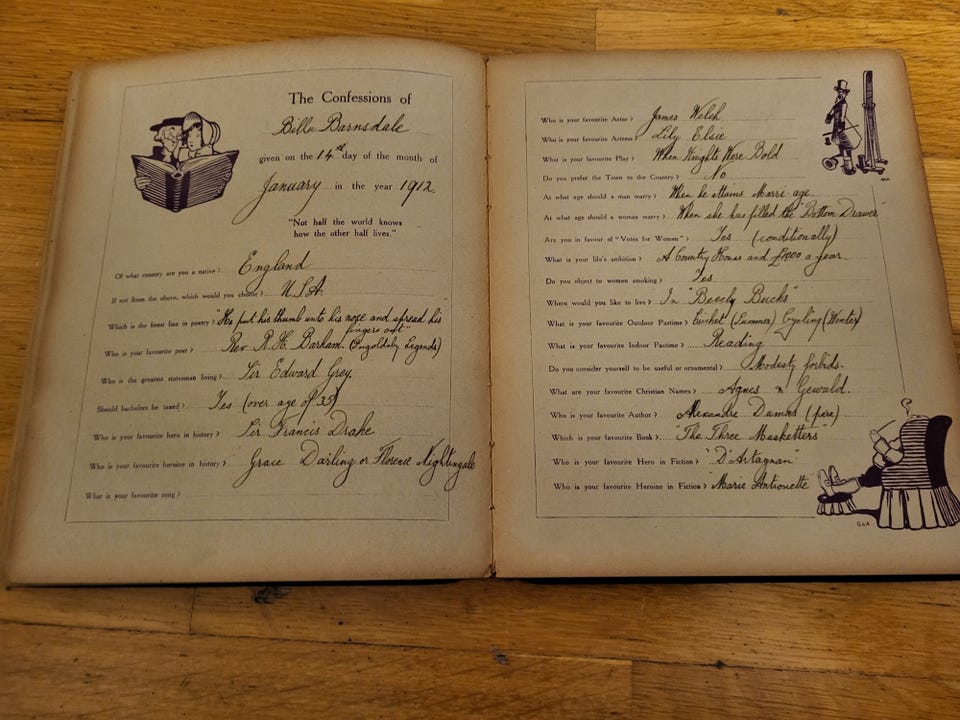 The Confessions of
Billie Barnsdale
given on the 14th day of the month of
January in the year 1912.
"Not half the world knows
how the other half lives."
Of what country are you a native? England
If not from the above, which would you choose? U.S.A.
Which is the finest line in poetry? "He put his thumb unto his nose and spread his
fingers out"
Who is your favourite poet? Rev R. H. Barham. (Ingoldsby Legends)
Who is the greatest statesman living? Sir Edward Grey.
Should bachelors be taxed? Yes (over age of 35)
Who is your favourite hero in history? Sir Francis Drake
Who is your favourite heroine in history? Grace Darling or Florence Nightingale
What is your favourite song?
Who is your favourite Actor? James Welch
Who is your favourite Actress? Lily Elsie
What is your favourite Play? When Knights Were Bold
Do you prefer the Town to the Country? No
At what age should a man marry? When he attains Marri-age.
At what age should a woman marry? When she has filled the "Bottom Drawer"
Are you in favour of "Votes for Women"? Yes (conditionally)
What is your life's ambition? A Country House and £1000 a year.
Do you object to women smoking? Yes
Where would you like to live? In "Beechy Bucks"
What is your favourite Outdoor Pastime? Cricket (Summer) Cycling (Winter)
What is your favourite Indoor Pastime? Reading
Do you consider yourself to be useful or ornamental? Modesty forbids.
What are your favourite Christian Names? Agnes & Gewald.
Who is your favourite Author? Alexandre Dumas (père)
Which is your favourite Book? "The Three Musketters"
Who is your favourite Hero in Fiction? "D'Artagnan"
Who is your favourite Heroine in Fiction? "Marie Antionette
G.e.A